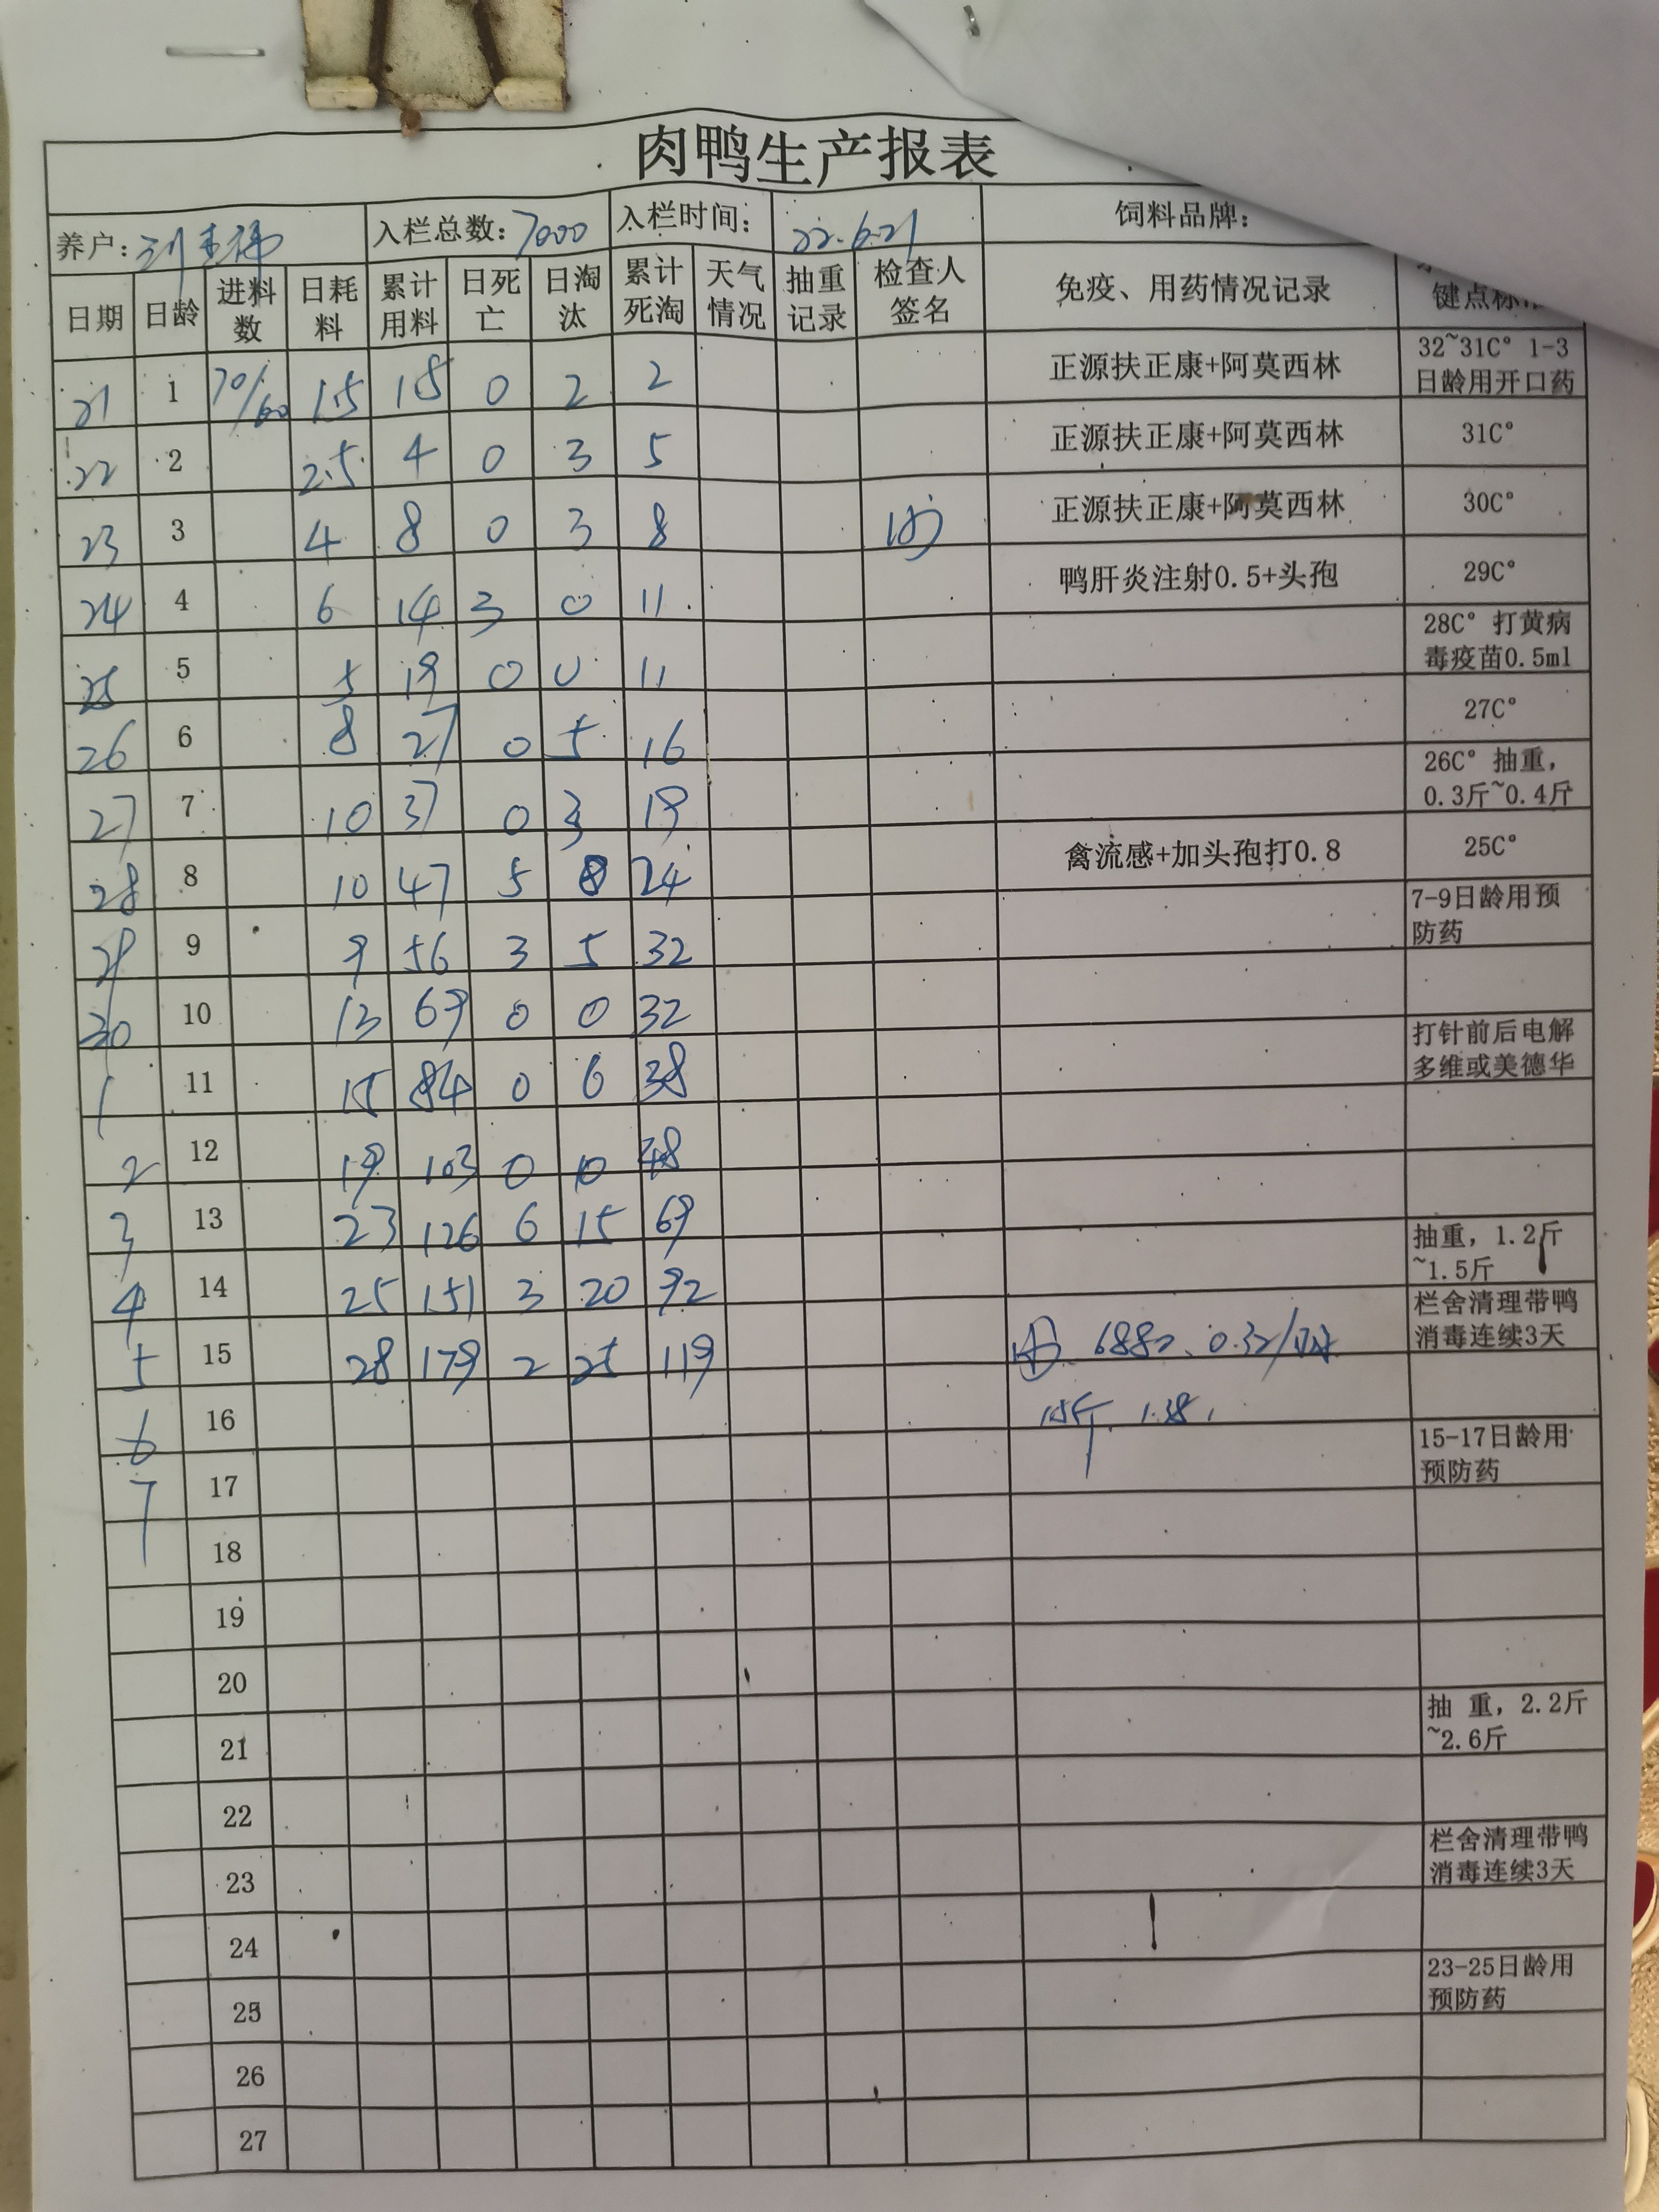 肉鸭生产报表
养户: 入栏总数: 7000 入栏时间: 22.6.21 饲料品牌:
日期 日龄 进料数 日耗料 累计用料 日死亡 日淘汰 累计死淘 天气情况 抽重记录 检查人签名 免疫、用药情况记录 键点标
21 1 70/60 1.5 1.5 0 2 2 正源扶正康+阿莫西林 32~31C° 1-3日龄用开口药
22 2 2.5 4 0 3 5 正源扶正康+阿莫西林 31C°
23 3 4 8 0 3 8 正源扶正康+阿莫西林 30C°
24 4 6 14 3 0 11 鸭肝炎注射0.5+头孢 29C°
25 5 5 19 0 0 11 28C° 打黄病毒疫苗0.5ml
26 6 8 27 0 5 16 27C°
27 7 10 37 0 3 19 26C° 抽重，0.3斤~0.4斤
28 8 10 47 5 0 24 禽流感+加头孢打0.8 25C°
29 9 9 56 3 5 32 7-9日龄用预防药
30 10 13 69 0 0 32
1 11 15 84 0 6 38 打针前后电解多维或美德华
2 12 19 103 0 10 48
3 13 23 126 6 15 69
4 14 25 151 3 20 92 抽重，1.2斤~1.5斤
5 15 28 179 2 25 119 6882、0.32/ 栏舍清理带鸭消毒连续3天
6 16 1.38
7 17 15-17日龄用预防药
18
19
20
21 抽 重，2.2斤~2.6斤
22
23 栏舍清理带鸭消毒连续3天
24
25 23-25日龄用预防药
26
27